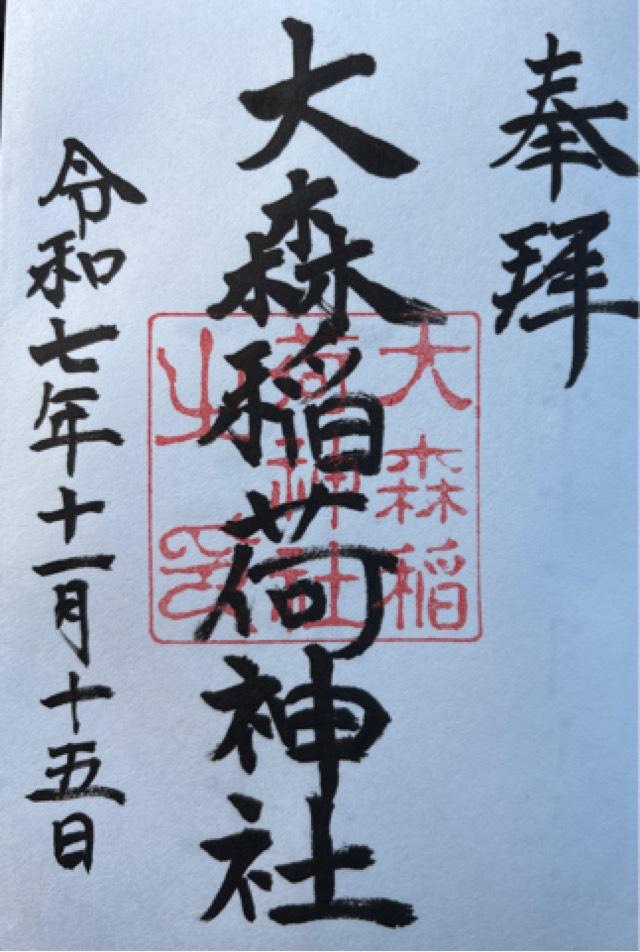 奉拝
大森稲荷神社
令和七年十一月十五日
大森稲
荷神社
之印